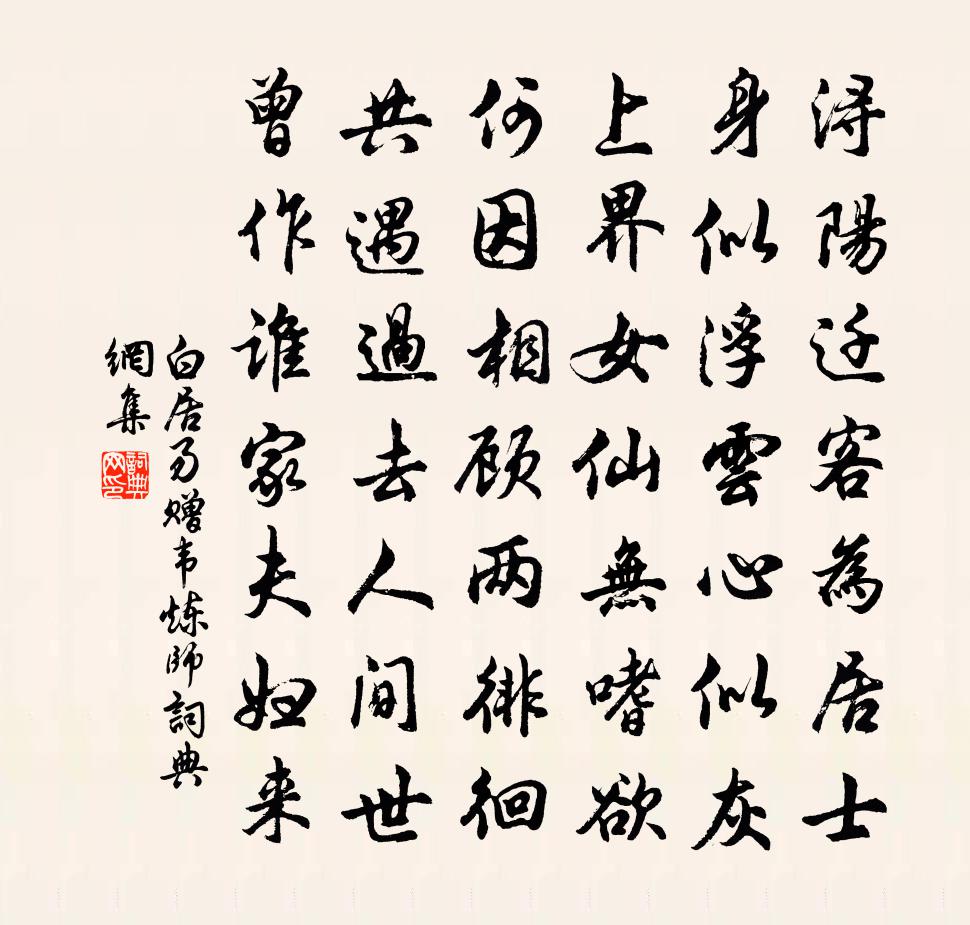 浔陽迁客為居士
身似浮雲心似灰
上界女仙無嗜欲
何因相顾两徘徊
共遇過去人间世
曾作谁家夫妇来
白居易赠韦炼師詞典
網集
詞典网印